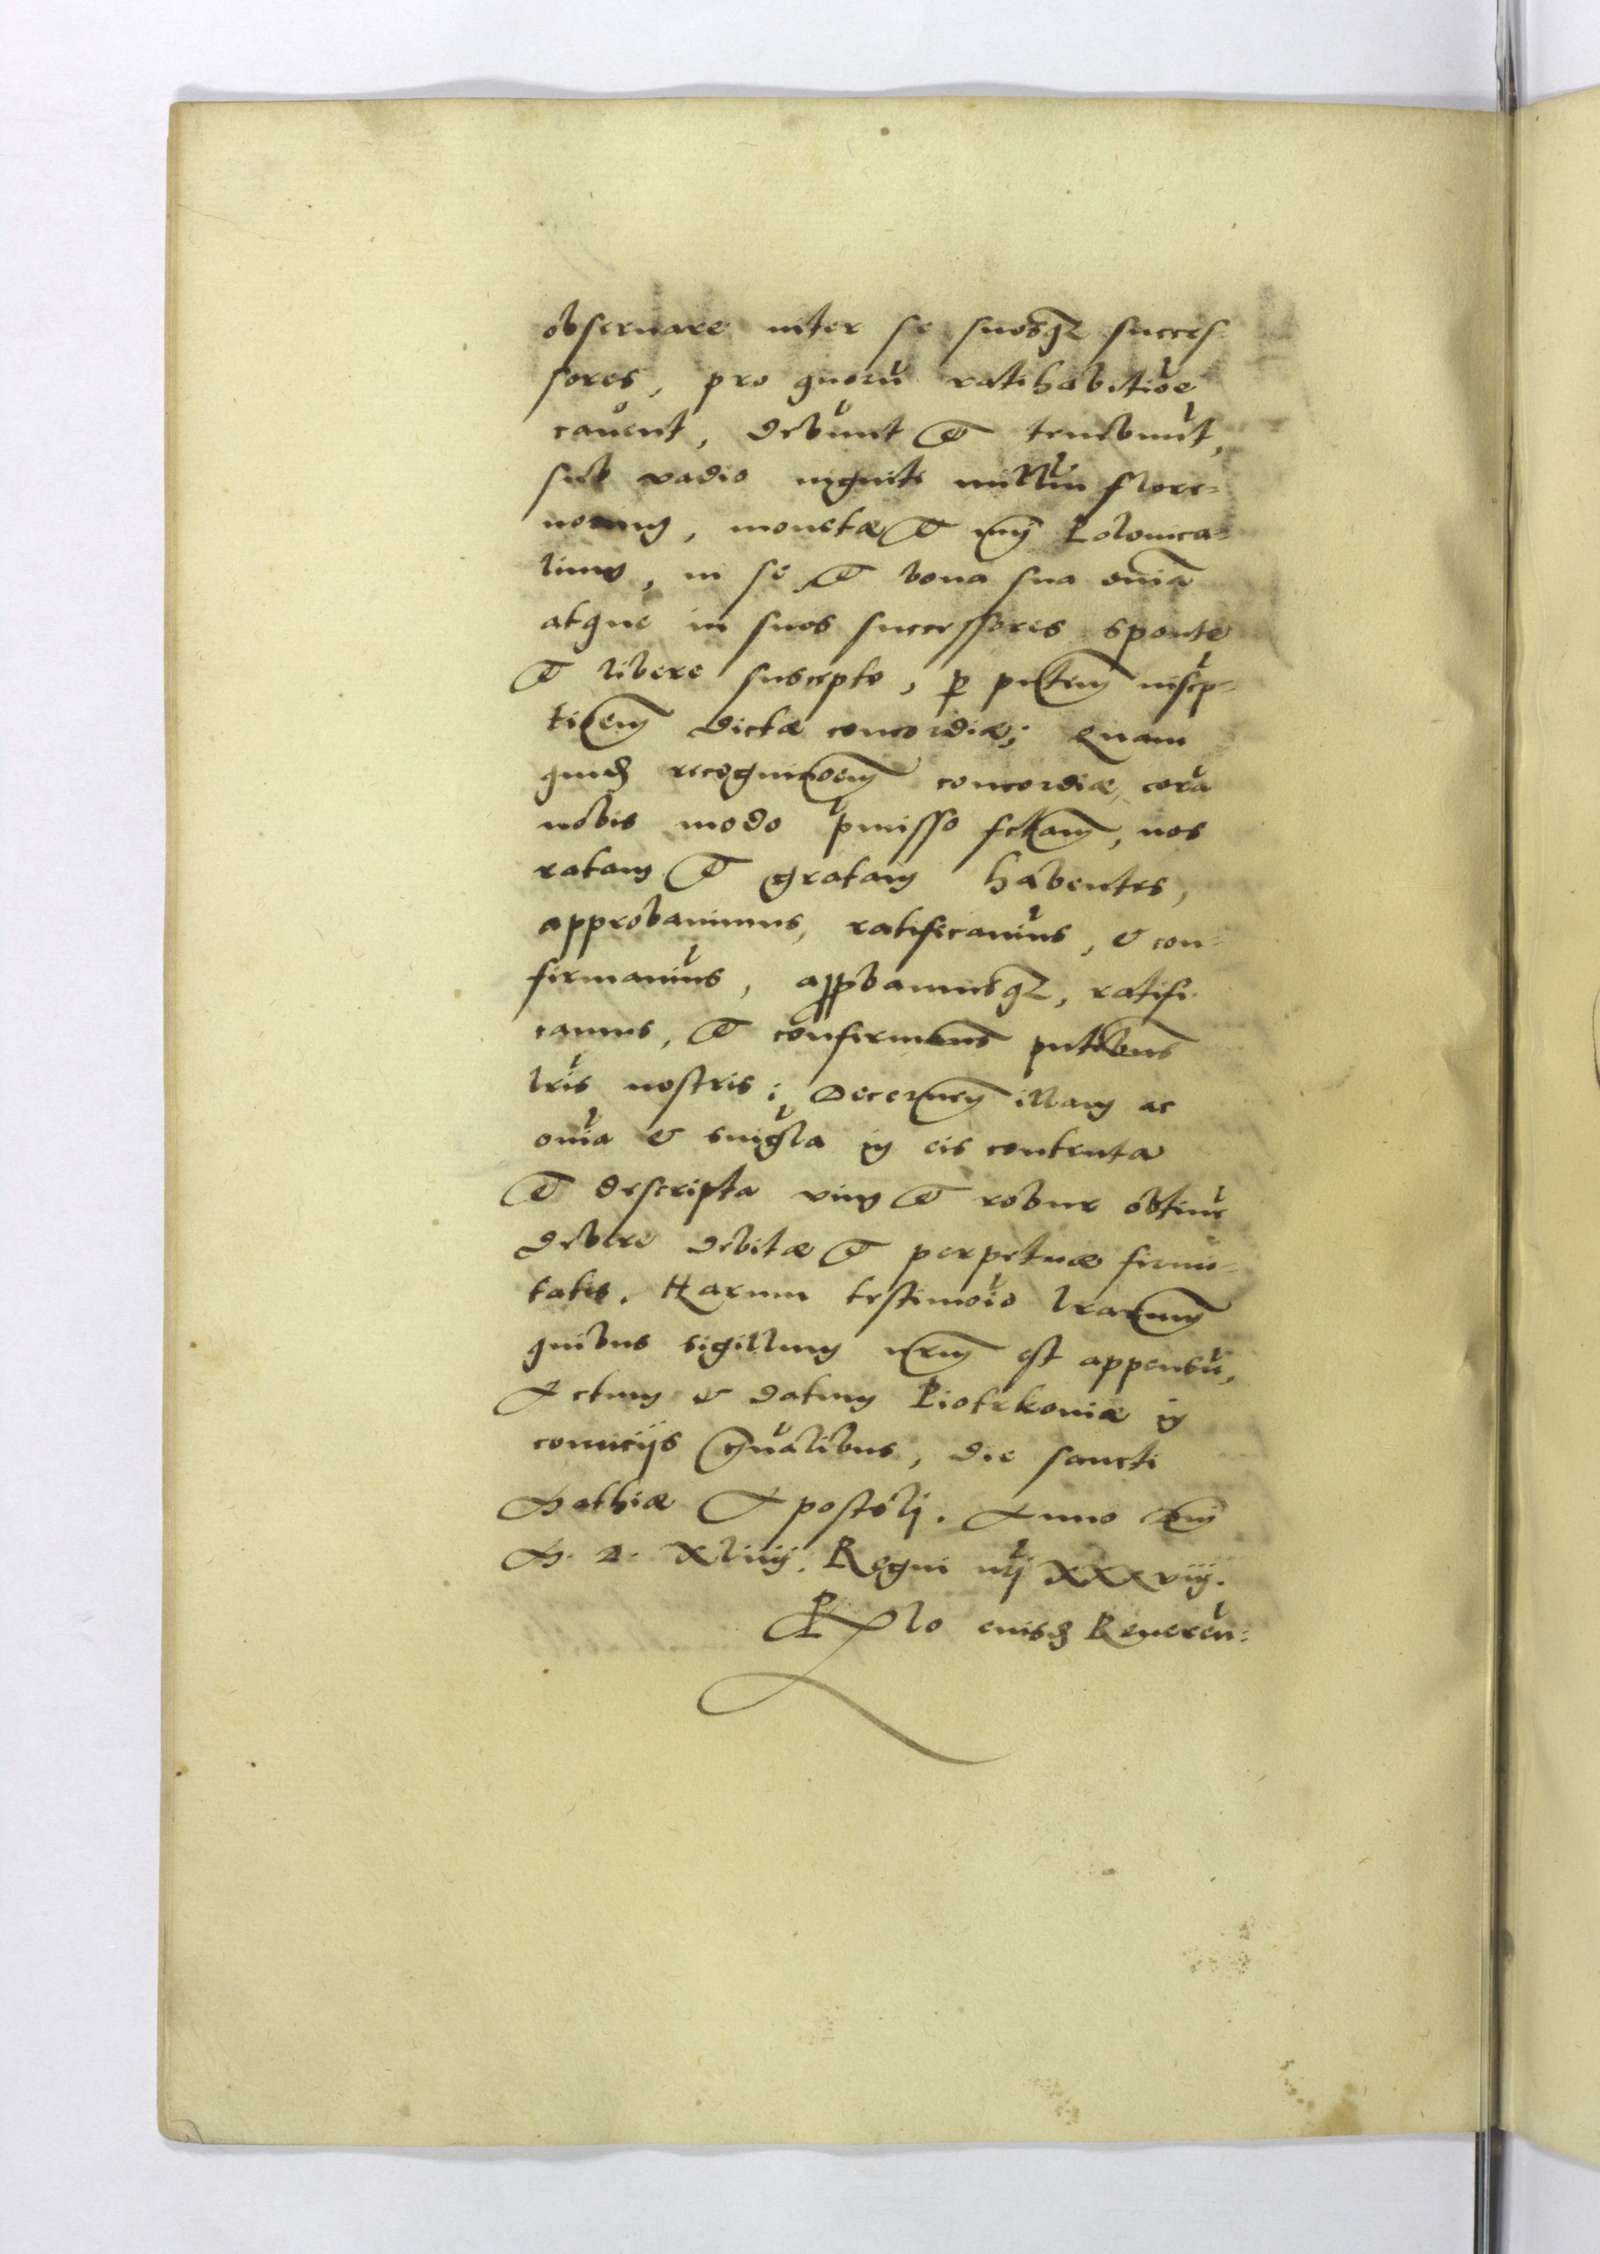 obseruare inter se suosq₃ succes
sores, pro quorū ratihabitiōe
cauent, debunt et tenebunt,
sub vadio viginti milliū flore=
norum, monetæ et Polonica=
lium, in se et bona sua om̄ia
atque in suos successores sponte
et libere suscepto, p̱ pn̄tem inscp=
tiōem dictæ concordiæ; Quam
quid̄ recognitiōem concordiæ, corā
nobis modo p̄misso fctam, nos
ratam et gratam habentes,
approbauimus, ratificauim̄s, & con=
firmauim̄s, appbamusq₃, ratifi
camus, et confirmam̄s pn̄tibus
lr̄is nostris; Decernen̄ illam ac
om̄ia & singl̄a in eis contenta
et descripta vim et robur obtin̄e
debere debitæ et perpetuæ firmi=
tatis. Harum testimōio lr̄arum
quibus sigillum nr̄m est appensū,
Actum & datum Piotrkouiæ in
comicijs gn̄alibus, die sancti
Mathiæ Apostoli. Anno Dn̄i
M. D. Xliiij. Regni nr̄j XXXviij.
Rlo eiusd̄ Reueren: